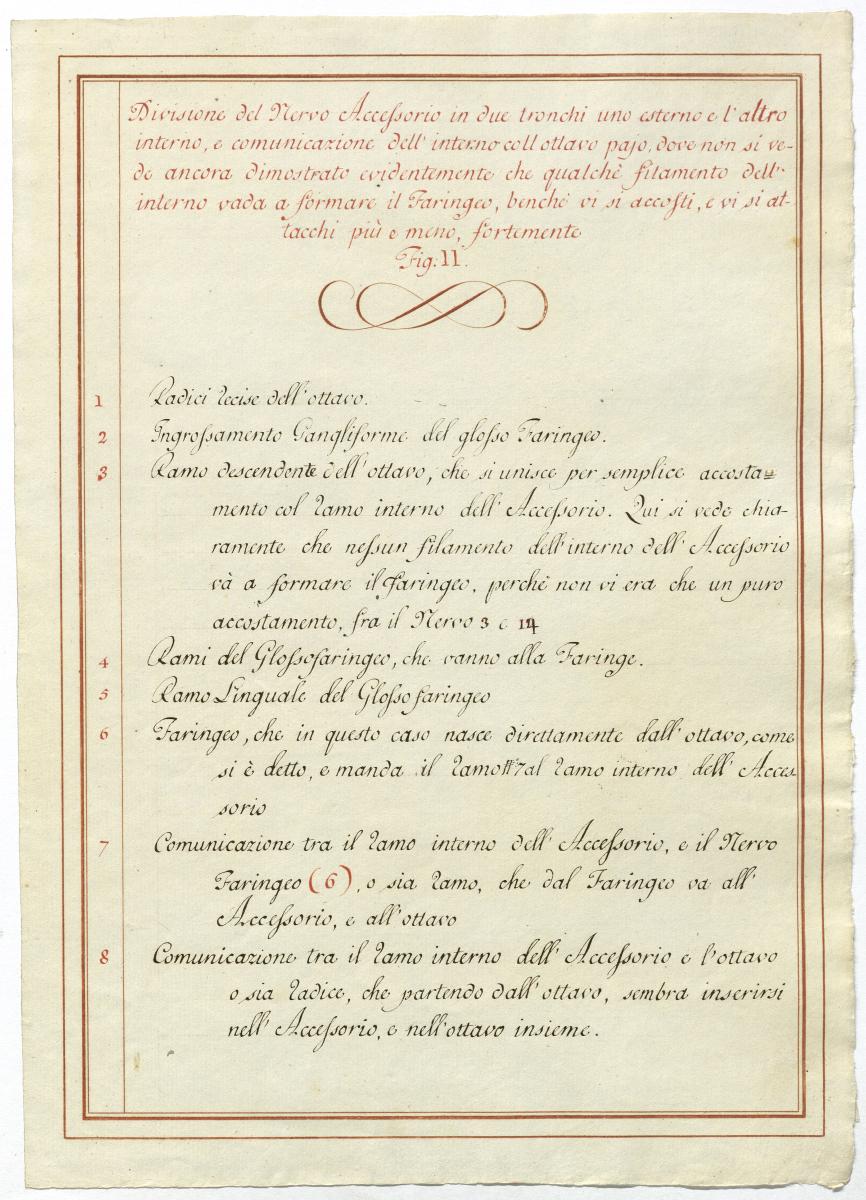 Divisione del Nervo Accessorio in due tronchi uno esterno e l'altro
interno, e comunicazione dell'interno coll ottavo pajo, dove non si ve-
de ancora dimostrato evidentemente che qualche filamento dell'
interno vada a formare il Faringeo, benche vi si accosti, e vi si at-
tacchi più e meno, fortemente
Fig: 11.
1 Radici recise dell'ottavo.
2 Ingrossamento Gangliforme del glosso Faringeo.
3 Ramo descendente dell'ottavo, che si unisce per semplice accosta=
mento col ramo interno dell'Accessorio. Qui si vede chia-
ramente che nessun filamento dell'interno dell'Accessorio
và a formare il Faringeo, perchè non vi era che un puro
accostamento, fra il Nervo 3 e 14
4 Rami del Glossofaringeo, che vanno alla Faringe.
5 Ramo Linguale del Glosso faringeo
6 Faringeo, che in questo caso nasce direttamente dall'ottavo, come
si è detto, e manda il ramo # 7 al ramo interno dell'Acces
sorio
7 Comunicazione tra il ramo interno dell'Accessorio, e il Nervo
Faringeo (6), o sia ramo, che dal Faringeo va all'
Accessorio, e all'ottavo
8 Comunicazione tra il ramo interno dell'Accessorio e l'ottavo
o sia radice, che partendo dall'ottavo, sembra inserirsi
nell'Accessorio, e nell'ottavo insieme.